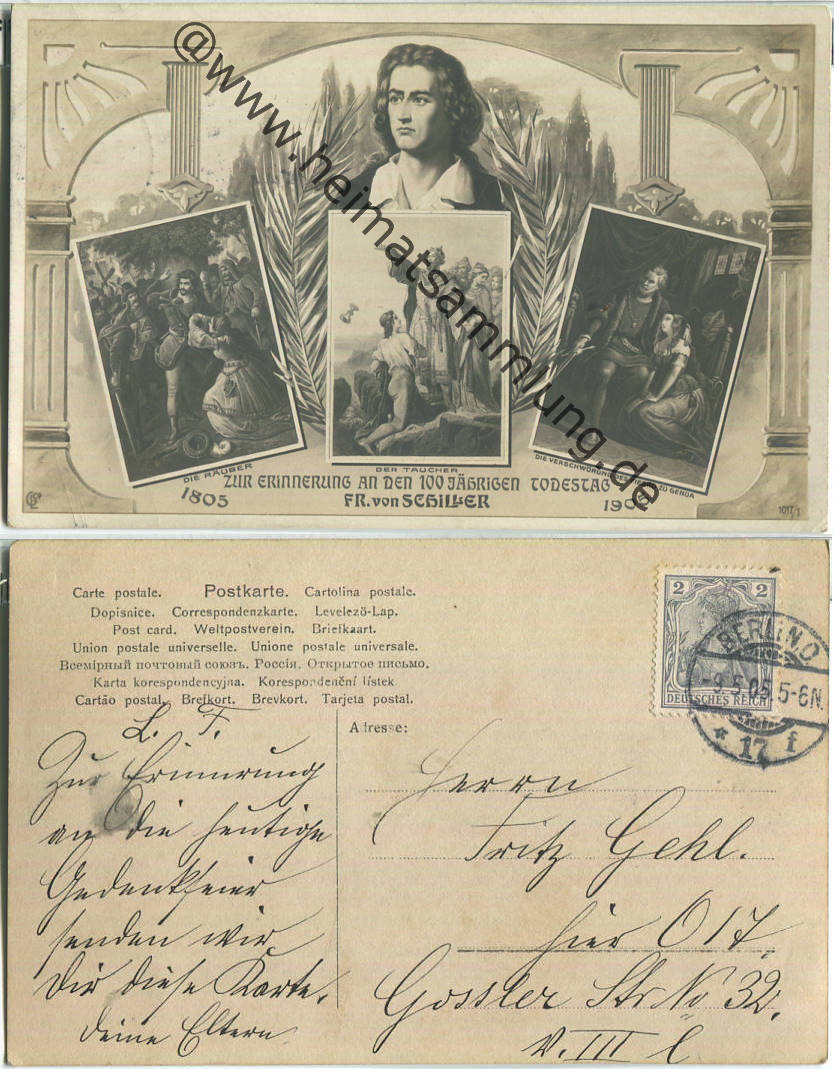 @www.heimatsammlung.de
DIE RÄUBER
DER TAUCHER
DIE VERSCHWÖRUNG DES FIESKO ZU GENUA
ZUR ERINNERUNG AN DEN 100 JÄHRIGEN TODESTAG
1805 FR. von SCHILLER 190
1017/1
Carte postale. Postkarte. Cartolina postale.
Dopisnice. Correspondenzkarte. Levelező-Lap.
Post card. Weltpostverein. Briefkaart.
Union postale universelle. Unione postale universale.
Всемірный почтовый союзъ. Россія. Открытое письмо.
Karta korespondencyjna. Korespondenční lístek
Cartão postal. Brefkort. Brevkort. Tarjeta postal.
2 2
DEUTSCHES REICH
BERLIN.O
-9.5.05.5-6N.
* 17 f
L. F.
Zur Erinnerung
an die heutige
Gedenkfeier
senden wir
Dir diese Karte.
Deine Eltern
Adresse:
Herrn
Fritz Gehl.
hier O 17.
Gossler Str. No 32.
v. III l